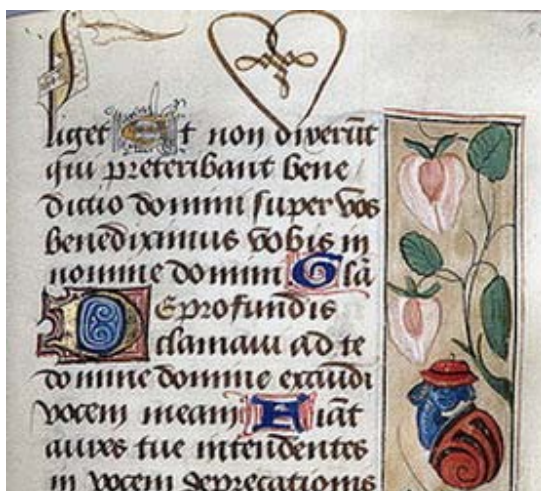 liget Et non dixerūt
qui preteribant bene
dictio domini super vos
benediximus vobis in
nomine domini Glā
De profundis
clamaui ad te
domine domine exaudi
vocem meam Fiāt
aures tue intendentes
in vocem deprecationis